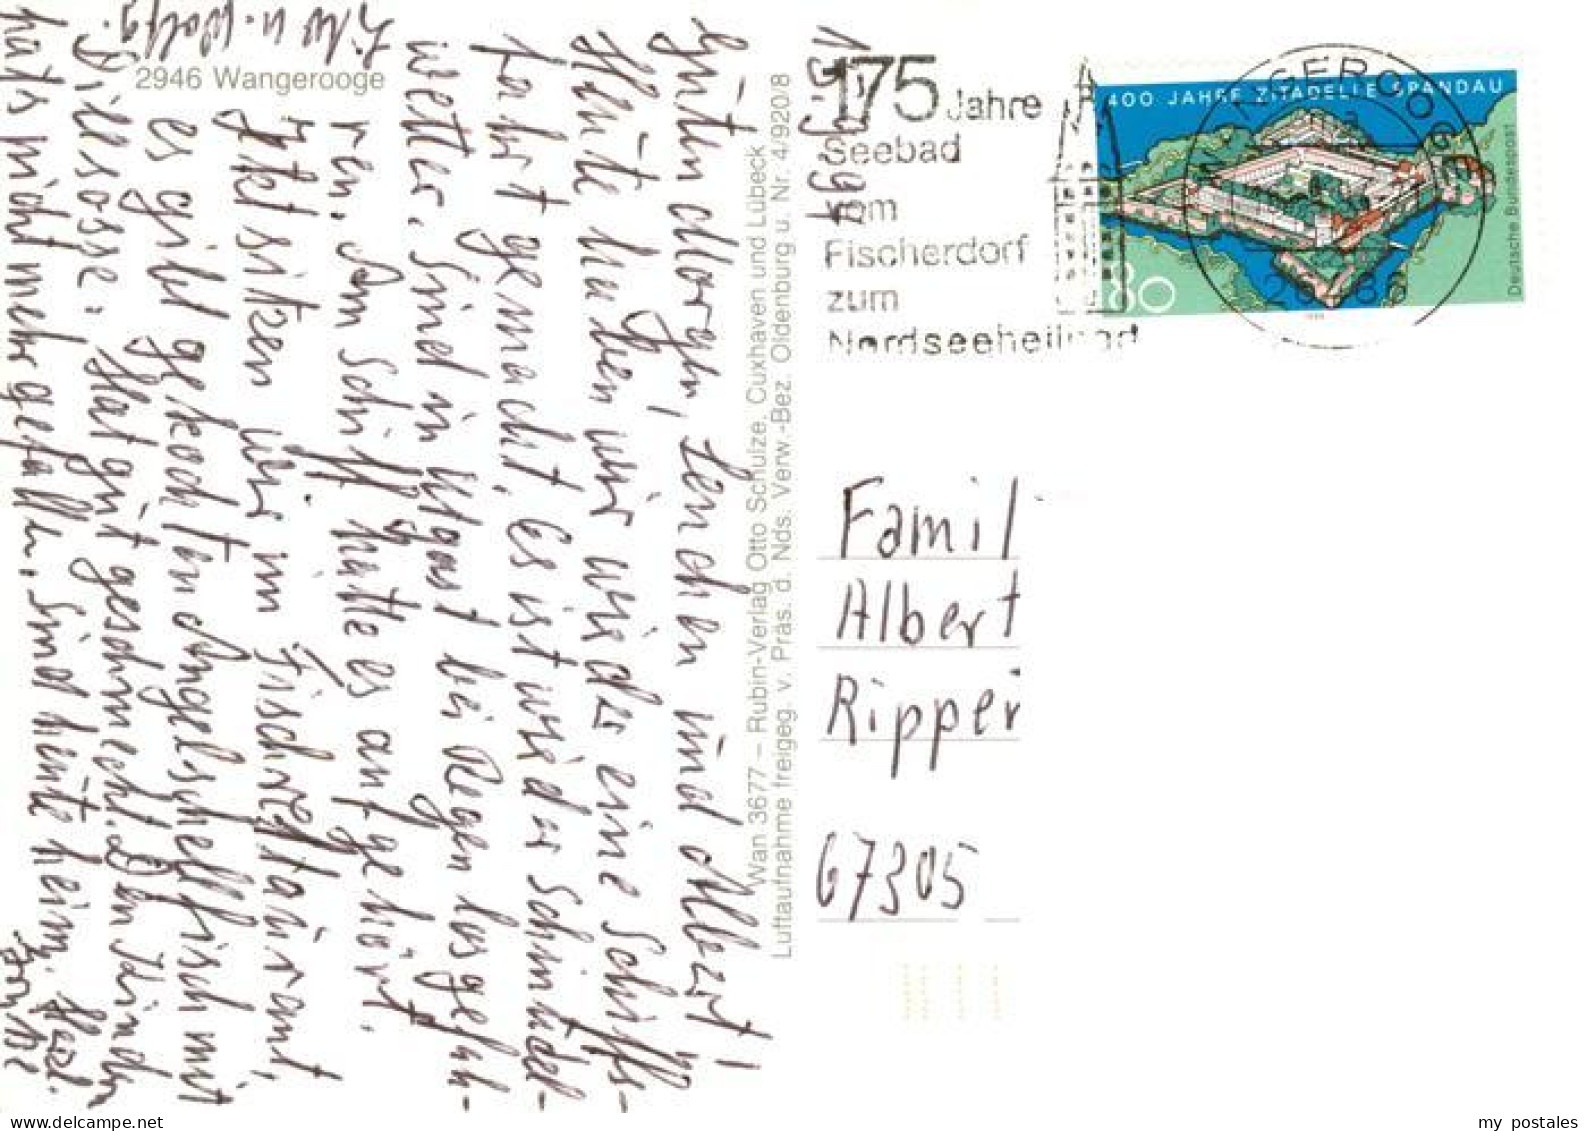 1.5.1994
Guten Morgen, Lenchen und Albert!
Heute haben wir wieder eine Schiffs-
fahrt gemacht. Es ist wieder Schmuddel-
wetter. Sind in bei Regen losgefah-
ren. Am Schiff hatte es aufgehört.
Jetzt sitzen wir im Fischrestaurant,
es gibt gekochten Angelschellfisch mit
Dillsosse. Hat gut geschmeckt. Den Kindern
hat's nicht mehr gefallen. Sind heute heim. Herzl.
Grüße
u. Wolfg.
2946 Wangerooge
Wan 3677 – Rubin-Verlag Otto Schulze, Cuxhaven und Lübeck
Luftaufnahme freigeg. v. Präs. d. Nds. Verw.-Bez. Oldenburg u. Nr. 4/920/8
175 Jahre
Seebad
vom
Fischerdorf
zum
Nordseeheilbad
WANGEROOGE
400 JAHRE ZITADELLE SPANDAU
80
Deutsche Bundespost
Famil
Albert
Ripper
67305
my postales